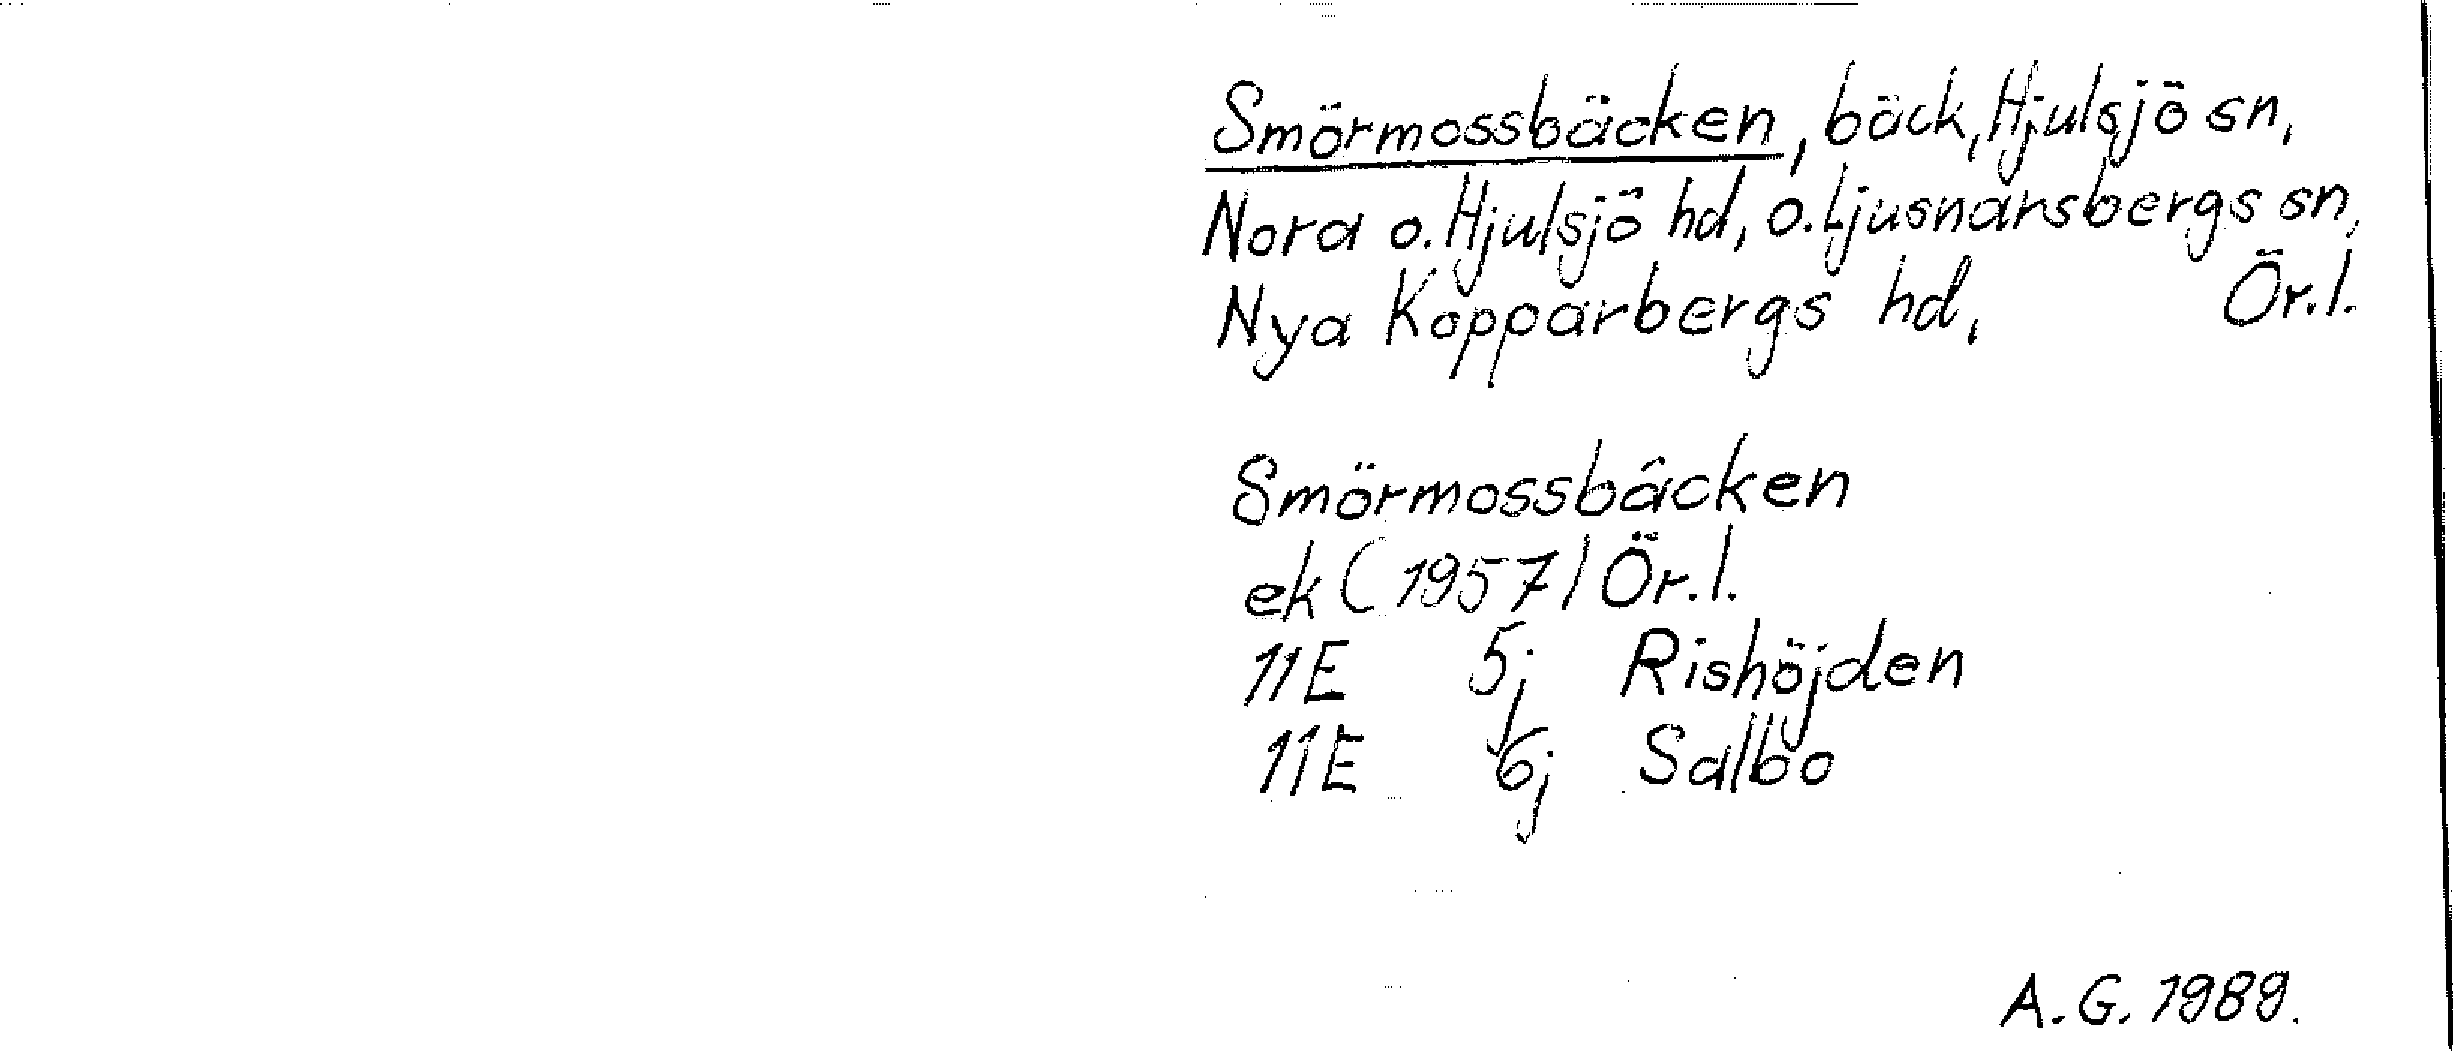 Smörmossbäcken, bäck, Hjulsjö sn,
Nora o. Hjulsjö hd, o. Ljusnarsbergs sn,
Nya Kopparbergs hd, Ör.l.
Smörmossbäcken
ek (1957) Ör.l.
11E 5j Rishöjden
11E 6j Salbo
A.G. 1989.